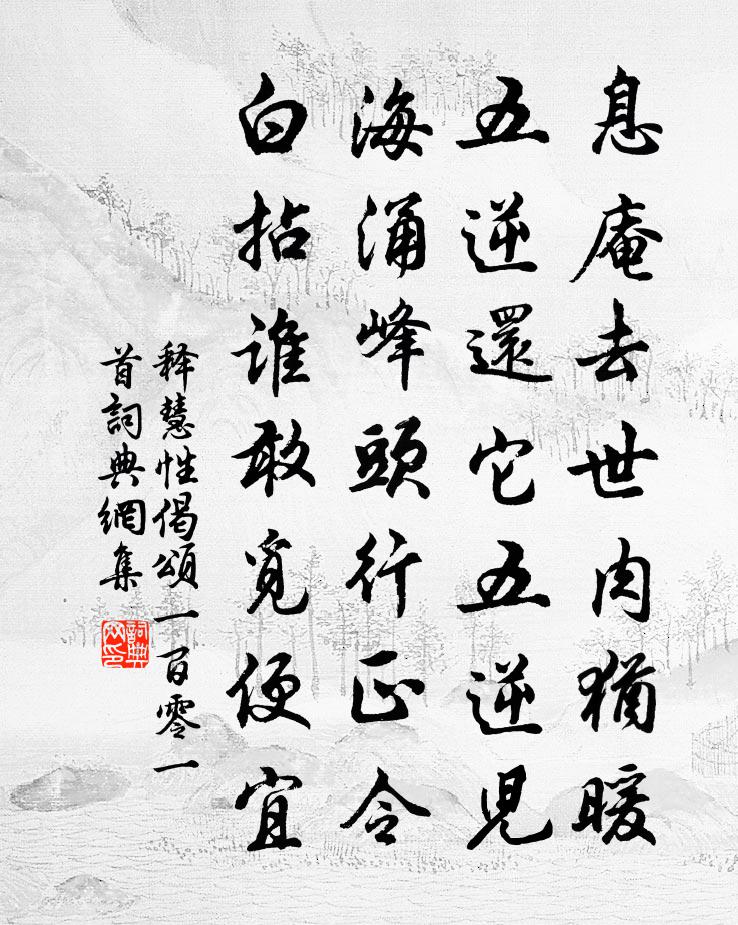 息庵去世肉猶暖
五逆還它五逆兒
海涌峰頭行正令
白拈誰敢覓便宜
释慧性偈頌一百零一
首詞典網集
詞典网印